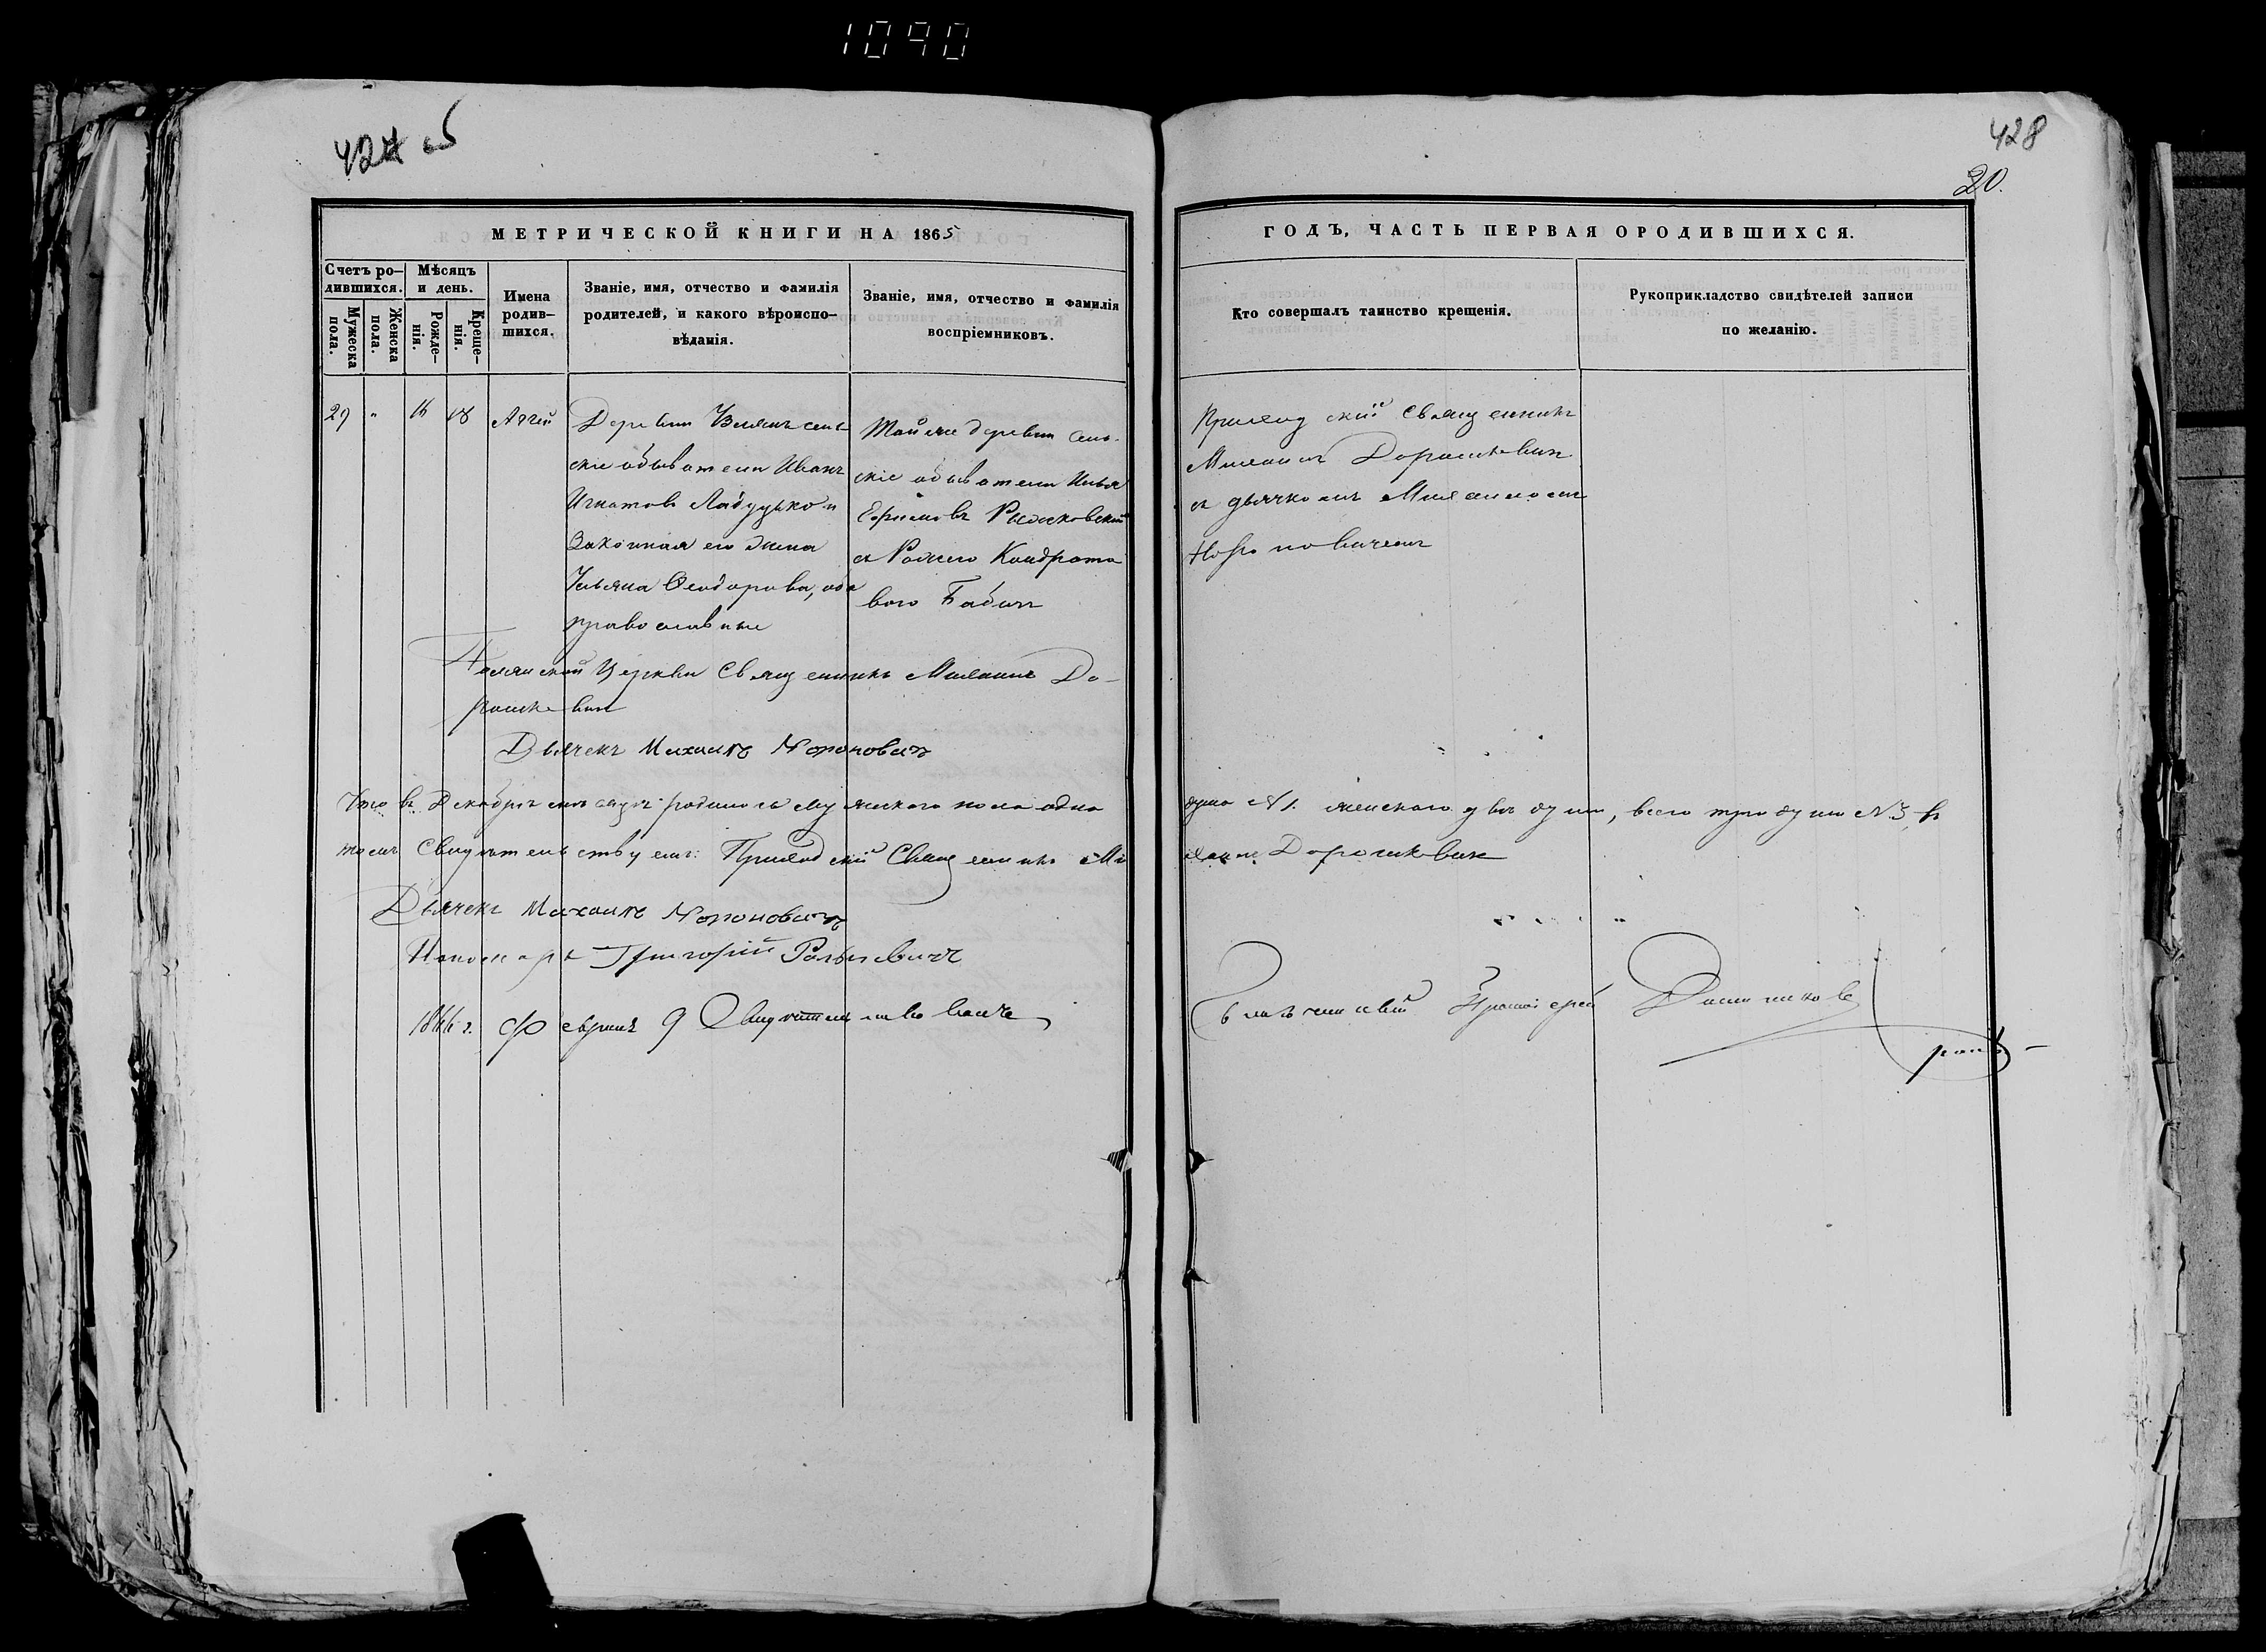 1090
428
20.
МЕТРИЧЕСКОЙ КНИГИ НА 1865
Счетъ ро-
дившихся.
Мужеска
пола.
Женска
пола.
Мѣсяцъ
и день.
Рожде-
нія.
Креще-
нія.
Имена
родив-
шихся.
Званіе, имя, отчество и фамилія
родителей, и какого вѣроиспо-
вѣданія.
Званіе, имя, отчество и фамилія
воспріемниковъ.
ГОДЪ, ЧАСТЬ ПЕРВАЯ О РОДИВШИХСЯ.
Кто совершалъ таинство крещенія.
Рукоприкладство свидѣтелей записи
по желанію.
29 " 16 18 Аггей
Деревни
скіе обыватели Иванъ
Игнатовъ Лабудько и
Законная его жена
Ульяна Ѳеодорова, оба
православные
Той же деревни сель-
скіе обыватели Илья
Ефимовъ
Кондрата
Бабичъ
Приходскій Священникъ
Михаилъ Дорошкевичъ
съ дьячкомъ Михаиломъ
Нороновичемъ
Церкви Священникъ Михаилъ До-
рошкевичъ
Дьячекъ Михаилъ Нороновичъ
Что въ Декабрѣ мѣсяцѣ родилось мужескаго пола одна
душа №1. женскаго двѣ души, всего три души №3, въ
томъ Свидѣтельствуемъ: Приходскій Священникъ Ми
хаилъ Дорошкевичъ
Дьячекъ Михаилъ Нороновичъ
Пономарь Григорій
1866 г. Февраля 9 Свидѣтельствовалъ
Благочинный Протоіерей